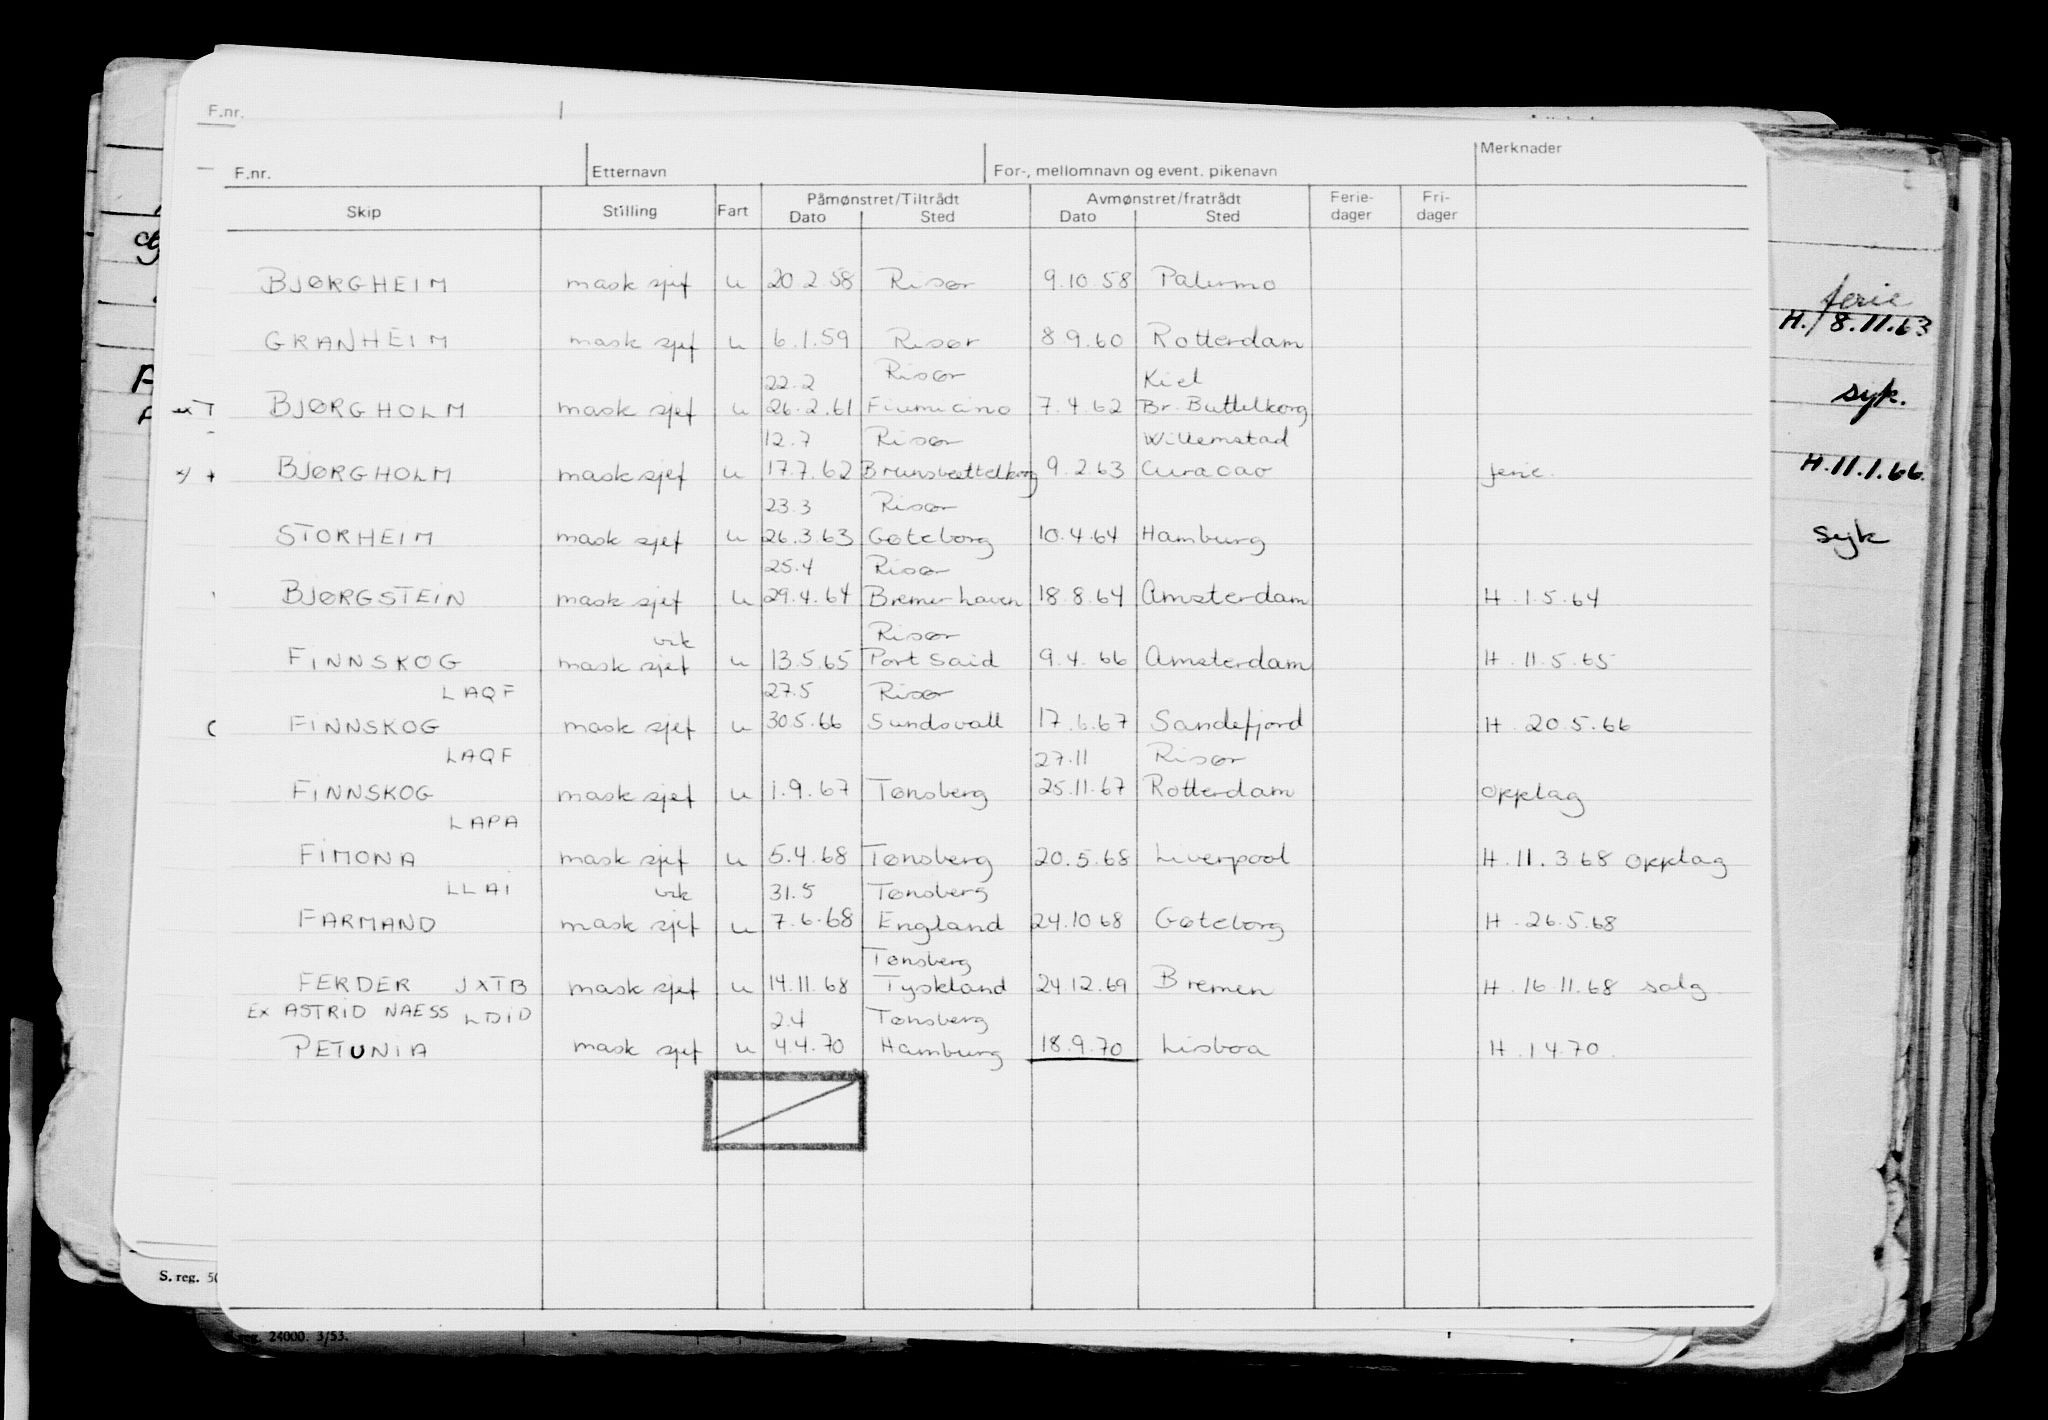 F.nr.
F.nr. Etternavn For-, mellomnavn og event. pikenavn Merknader
Skip Stilling Fart Påmønstret/Tiltrådt Avmønstret/fratrådt Ferie- Fri-
Dato Sted Dato Sted dager dager
BJØRGHEIM mask sjef u 20 2 58 Risør 9.10.58 Palermo
ferie
H. 8.11.63
GRANHEIM mask sjef u 6.1.59 Risør 8 9.60 Rotterdam
22.2 Risør Kiel
BJØRGHOLM mask sjef u 26.2.61 Fiumicino 7.4.62 Br. Buttelkorg syk.
12.7 Risør Willemstad
BJØRGHOLM mask sjef u 17.7.62 9.2.63 Curacao ferie. H.11.1.66.
23.3 Risør
STORHEIM mask sjef u 26.3.63 Gøteborg 10.4.64 Hamburg syk
25.4 Risør
BJØRGSTEIN mask sjef u 29.4.64 Bremerhaven 18.8.64 Amsterdam H.1.5.64
vik Risør
FINNSKOG mask sjef u 13.5.65 Port Said 9.4.66 Amsterdam H.11.5.65
LAQF 27.5 Risør
FINNSKOG mask sjef u 30 5.66 Sundsvall 17.6.67 Sandefjord H.20.5.66
LAQF 27.11 Risør
FINNSKOG mask sjef u 1.9.67 Tønsberg 25.11.67 Rotterdam opplag
LAPA
FIMONA mask sjef u 5.4.68 Tønsberg 20.5.68 Liverpool H.11.3.68 opplag
LLAI vik 31.5 Tønsberg
FARMAND mask sjef u 7.6.68 England 24.10 68 Gøteborg H.26.5.68
Tønsberg
FERDER JXTB mask sjef u 14.11.68 Tyskland 24.12.69 Bremen H.16.11.68 salg.
EX ASTRID NAESS LDID 2.4 Tønsberg
PETUNIA mask sjef u 4.4.70 Hamburg 18.9.70 Lisboa H.1.4.70.
S. reg. 50
reg. 24000. 3/53.